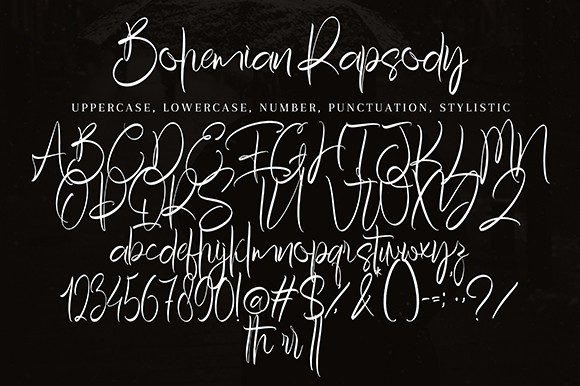 Bohemian Rapsody
UPPERCASE, LOWERCASE, NUMBER, PUNCTUATION, STYLISTIC
ABCDEFGHIJKLMN
OPQRSTUVWXYZ
abcdefghijklmnopqrstuvwxyz
1234567890!@#$%&*()-=;:.,?/
th rr ll